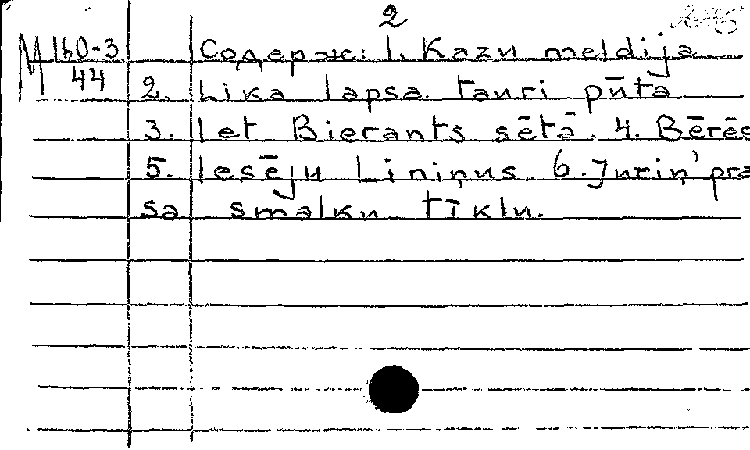 2
М 160-3 Содерж: 1. Kazu meldija
44 2. Lika lapsa tauri pūta
3. Iet Bierants sētā. 4. Bērēs
5. Iesēju Liniņus. 6. Juriņ' pra
sa smalku tīklu.